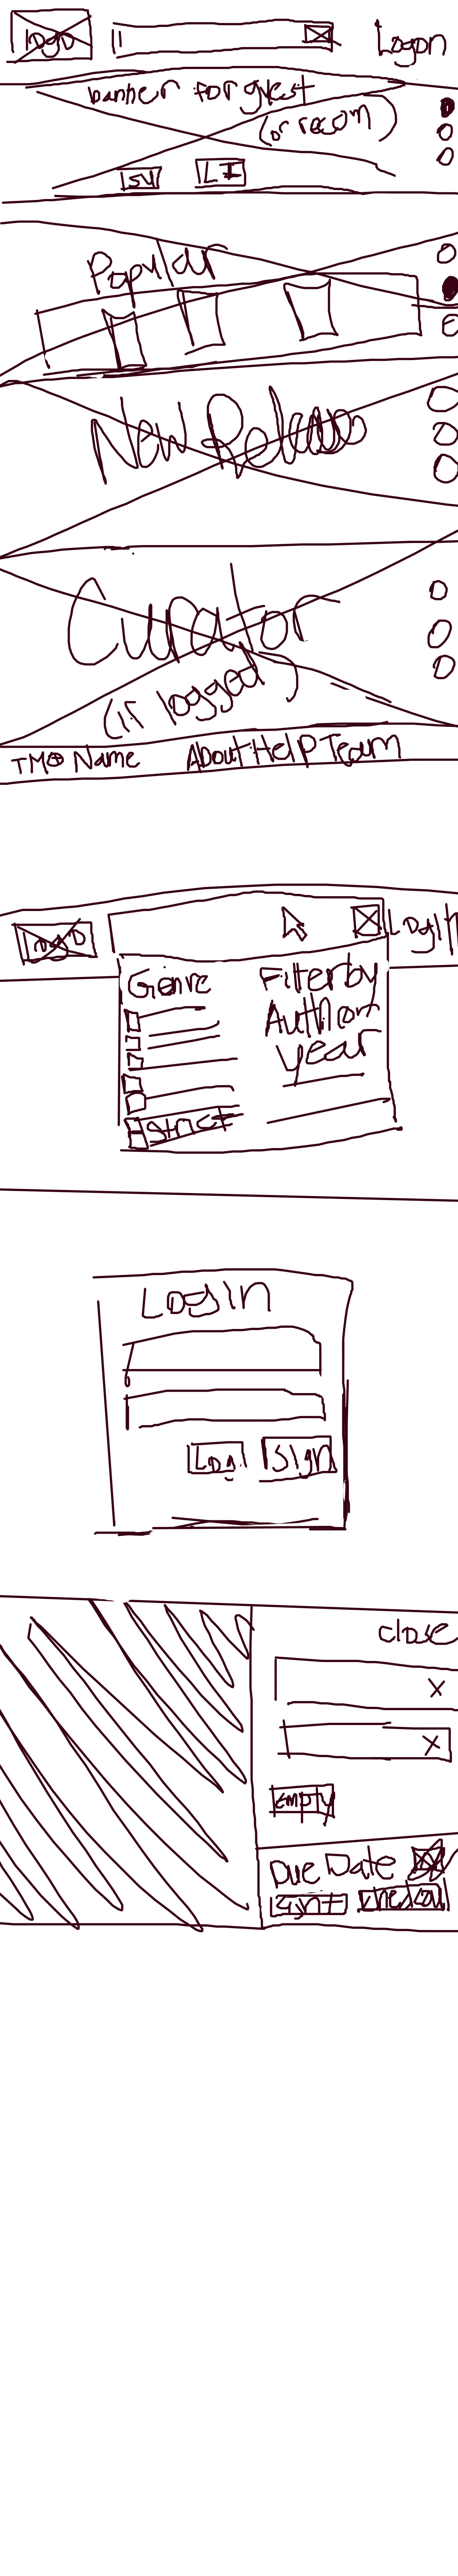 logo
Logon
banner for guest
(or recom)
SU LI
Popular
New Release
Curator
(if logged)
TM® Name About Help Team
logo
Login
Genre Filter by
Author
Year
Strict
Login
Log Sign
close
X
X
empty
Due Date